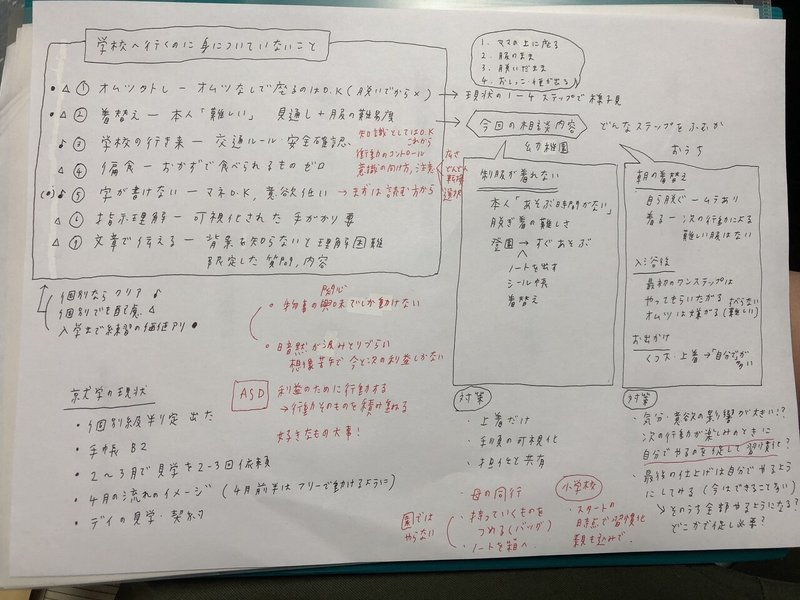 学校へ行くのに身についていないこと
●△① オムツのトレー オムツなしで座るのはO.K(脱いでから×)
→ 現状の1~4ステップで様子見
1. ママの上に座る
2. 服のまま
3. 脱いだまま
4. おしっこ・便が出る
●△② 着替えー 本人「難しい」 見通し+服の難易度
♪③ 学校の行き来ー 交通ルール・安全確認
知識としてはO.K
これから
衝動のコントロール
意識の向け方、注意
△④ 偏食ー おかずで食べられるもの ゼロ
(●)♪⑤ 字が書けないー マネO.K, 意欲低い → まずは読む方から
△⑥ 指示理解ー 可視化された手がかり要
△⑦ 文章で伝えるー 背景を知らないと理解困難
限定した質問, 内容
個別ならクリア ♪
個別でも配慮 △
入学まで練習の価値アリ ●
関心
○ 物書の興味でしか動けない
○ 暗黙が汲みとりづらい
想像苦手で今と次の利益しかない
ASD 利益のために行動する
→行動そのものを積み重ねる
好きなもの大事!
就学の現状
・個別級判定 出た
・手帳 B2
・2~3月で見学を2-3回依頼
・4月の流れのイメージ (4月前半はフリーで動けるように)
・デイの見学・契約
今回の相談内容 どんなステップをふむか
幼稚園
制服が着れない
本人「あそぶ時間がない」
脱ぎ着の難しさ
登園 → すぐあそぶ
ノートを出す
シール帳
着替え
対策
・上着だけ
・手順の可視化
・担任と共有
・母の同行
園では
やらない
・持っていくものを
つめる(バッグ)
・ノートを箱へ
小学校
・スタートの
時点で習慣化
親も込みで
おうち
朝の着替え
自ら脱ぐームラあり
着るー次の行動による
難しい服はない
入浴後
最初のワンステップは
やってもらいたがる
オムツは嫌がる(難しい)
お出かけ
くつ下・上着→「自分でが多い」
対策
・気分・意欲の影響が大きい!?
次の行動が楽しみのときに
自分でやるのを促して習慣化?
・最後の仕上げは自分でやるよう
にしてみる(今はできることない)
↘そのうち全部やるようになる?
どこかで促し必要?